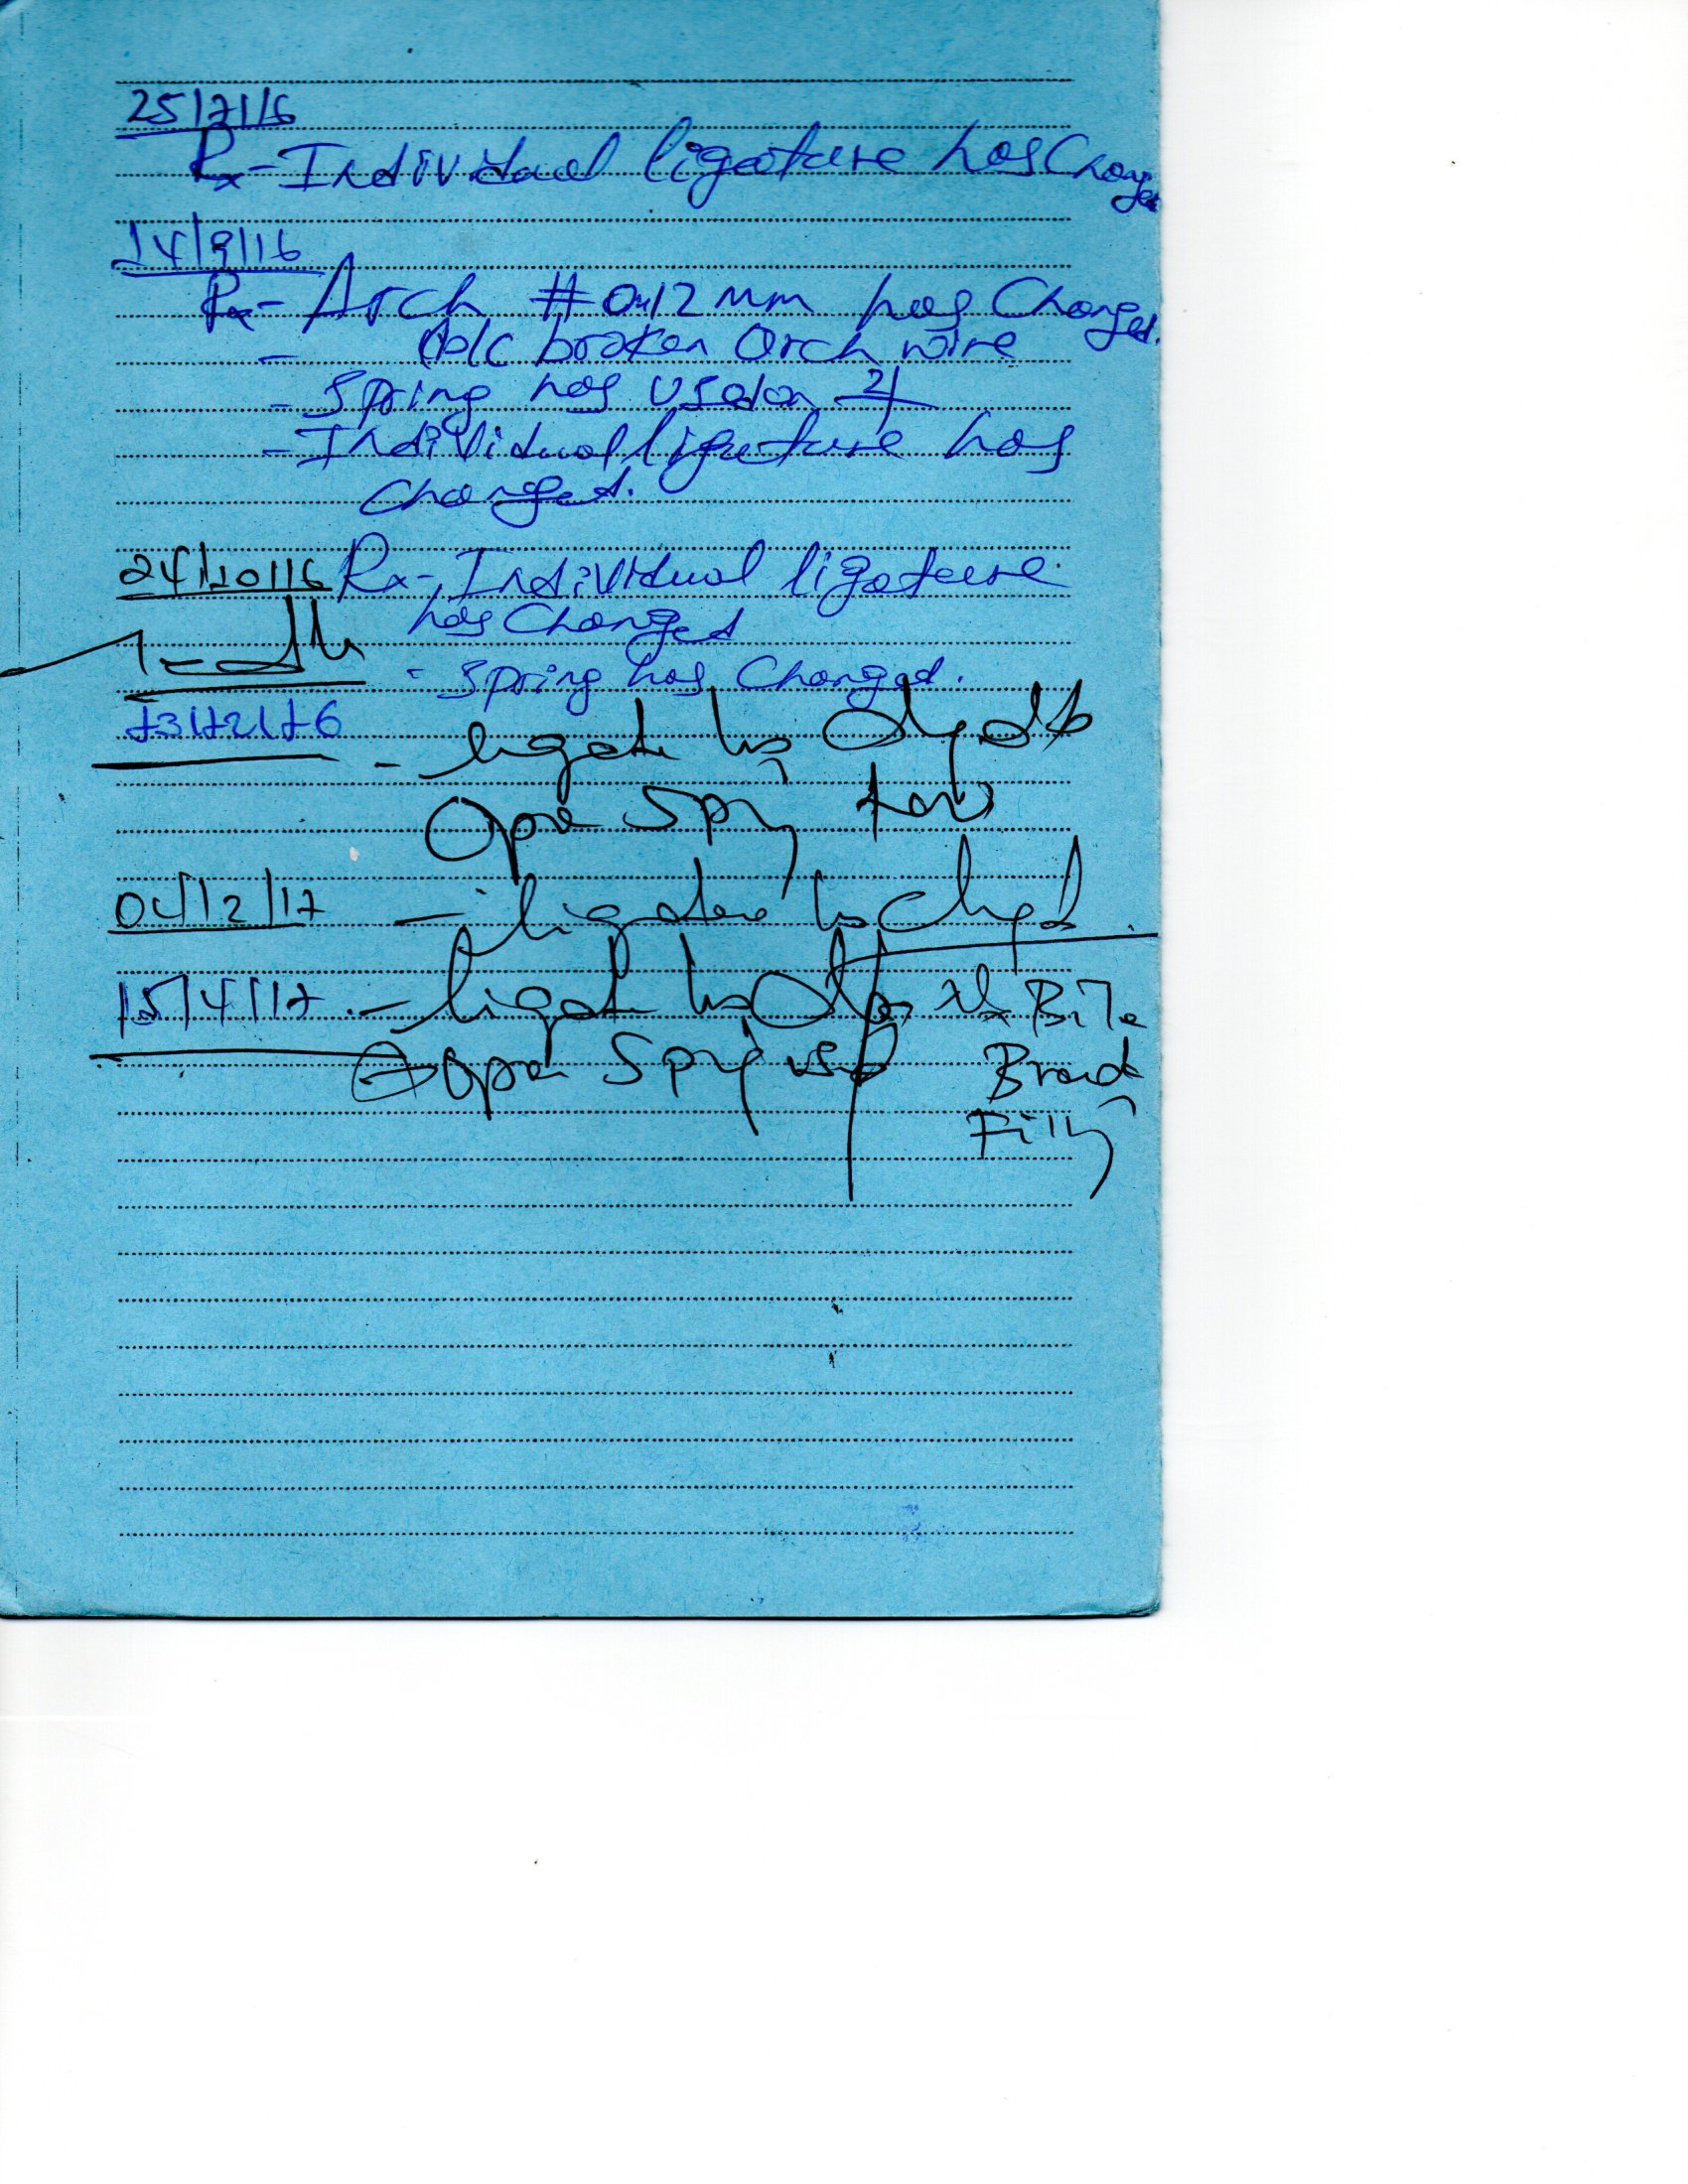 25/7/16
Rx - Individual ligature has Changed
14/9/16
Rx - Arch #0.12 mm has Changed.
- b/c broken Arch wire
- Spring has Used on 2|
- Individual ligature has
changed.
24/10/16 Rx - Individual ligature
has Changed
- Spring has Changed.
13/12/16
- ligate has
Open Spring
04/2/17 - ligature has chged.
15/4/17 - ligate has
Open Spring used
Fillg